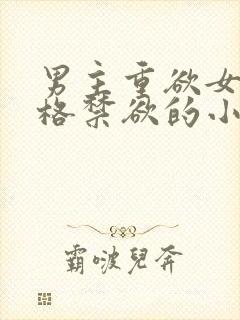 男主重欲女
格禁欲的小
霸啵兒奔